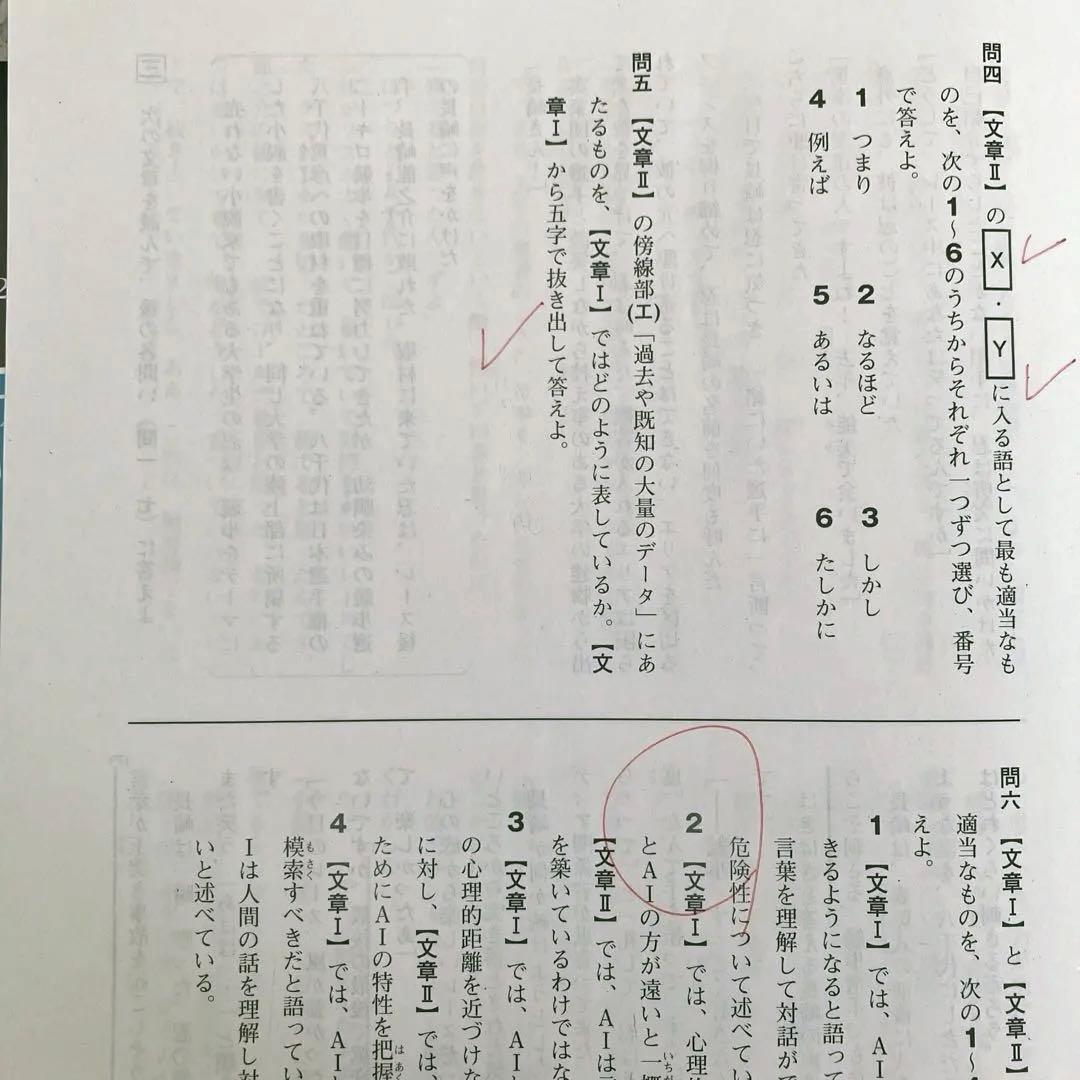 問四 【文章Ⅱ】の X ・ Y に入る語として最も適当なも
のを、次の1〜6のうちからそれぞれ一つずつ選び、番号
で答えよ。
1 つまり
2 なるほど
3 しかし
4 例えば
5 あるいは
6 たしかに
問五 【文章Ⅱ】の傍線部(エ)「過去や既知の大量のデータ」にあ
たるものを、【文章Ⅰ】ではどのように表しているか。【文
章Ⅰ】から五字で抜き出して答えよ。
問六 【文章Ⅰ】と【文章Ⅱ】
適当なものを、次の1〜
えよ。
1 【文章Ⅰ】では、AI
きるようになると語って
言葉を理解して対話がで
危険性について述べてい
2 【文章Ⅰ】では、心理的
とAIの方が遠いと一概
【文章Ⅱ】では、AIは
を築いているわけではな
3 【文章Ⅰ】では、AI
の心理的距離を近づけな
に対し、【文章Ⅱ】では、
ためにAIの特性を把握
4 【文章Ⅰ】では、AI
模索すべきだと語ってい
Iは人間の話を理解し対
いと述べている。